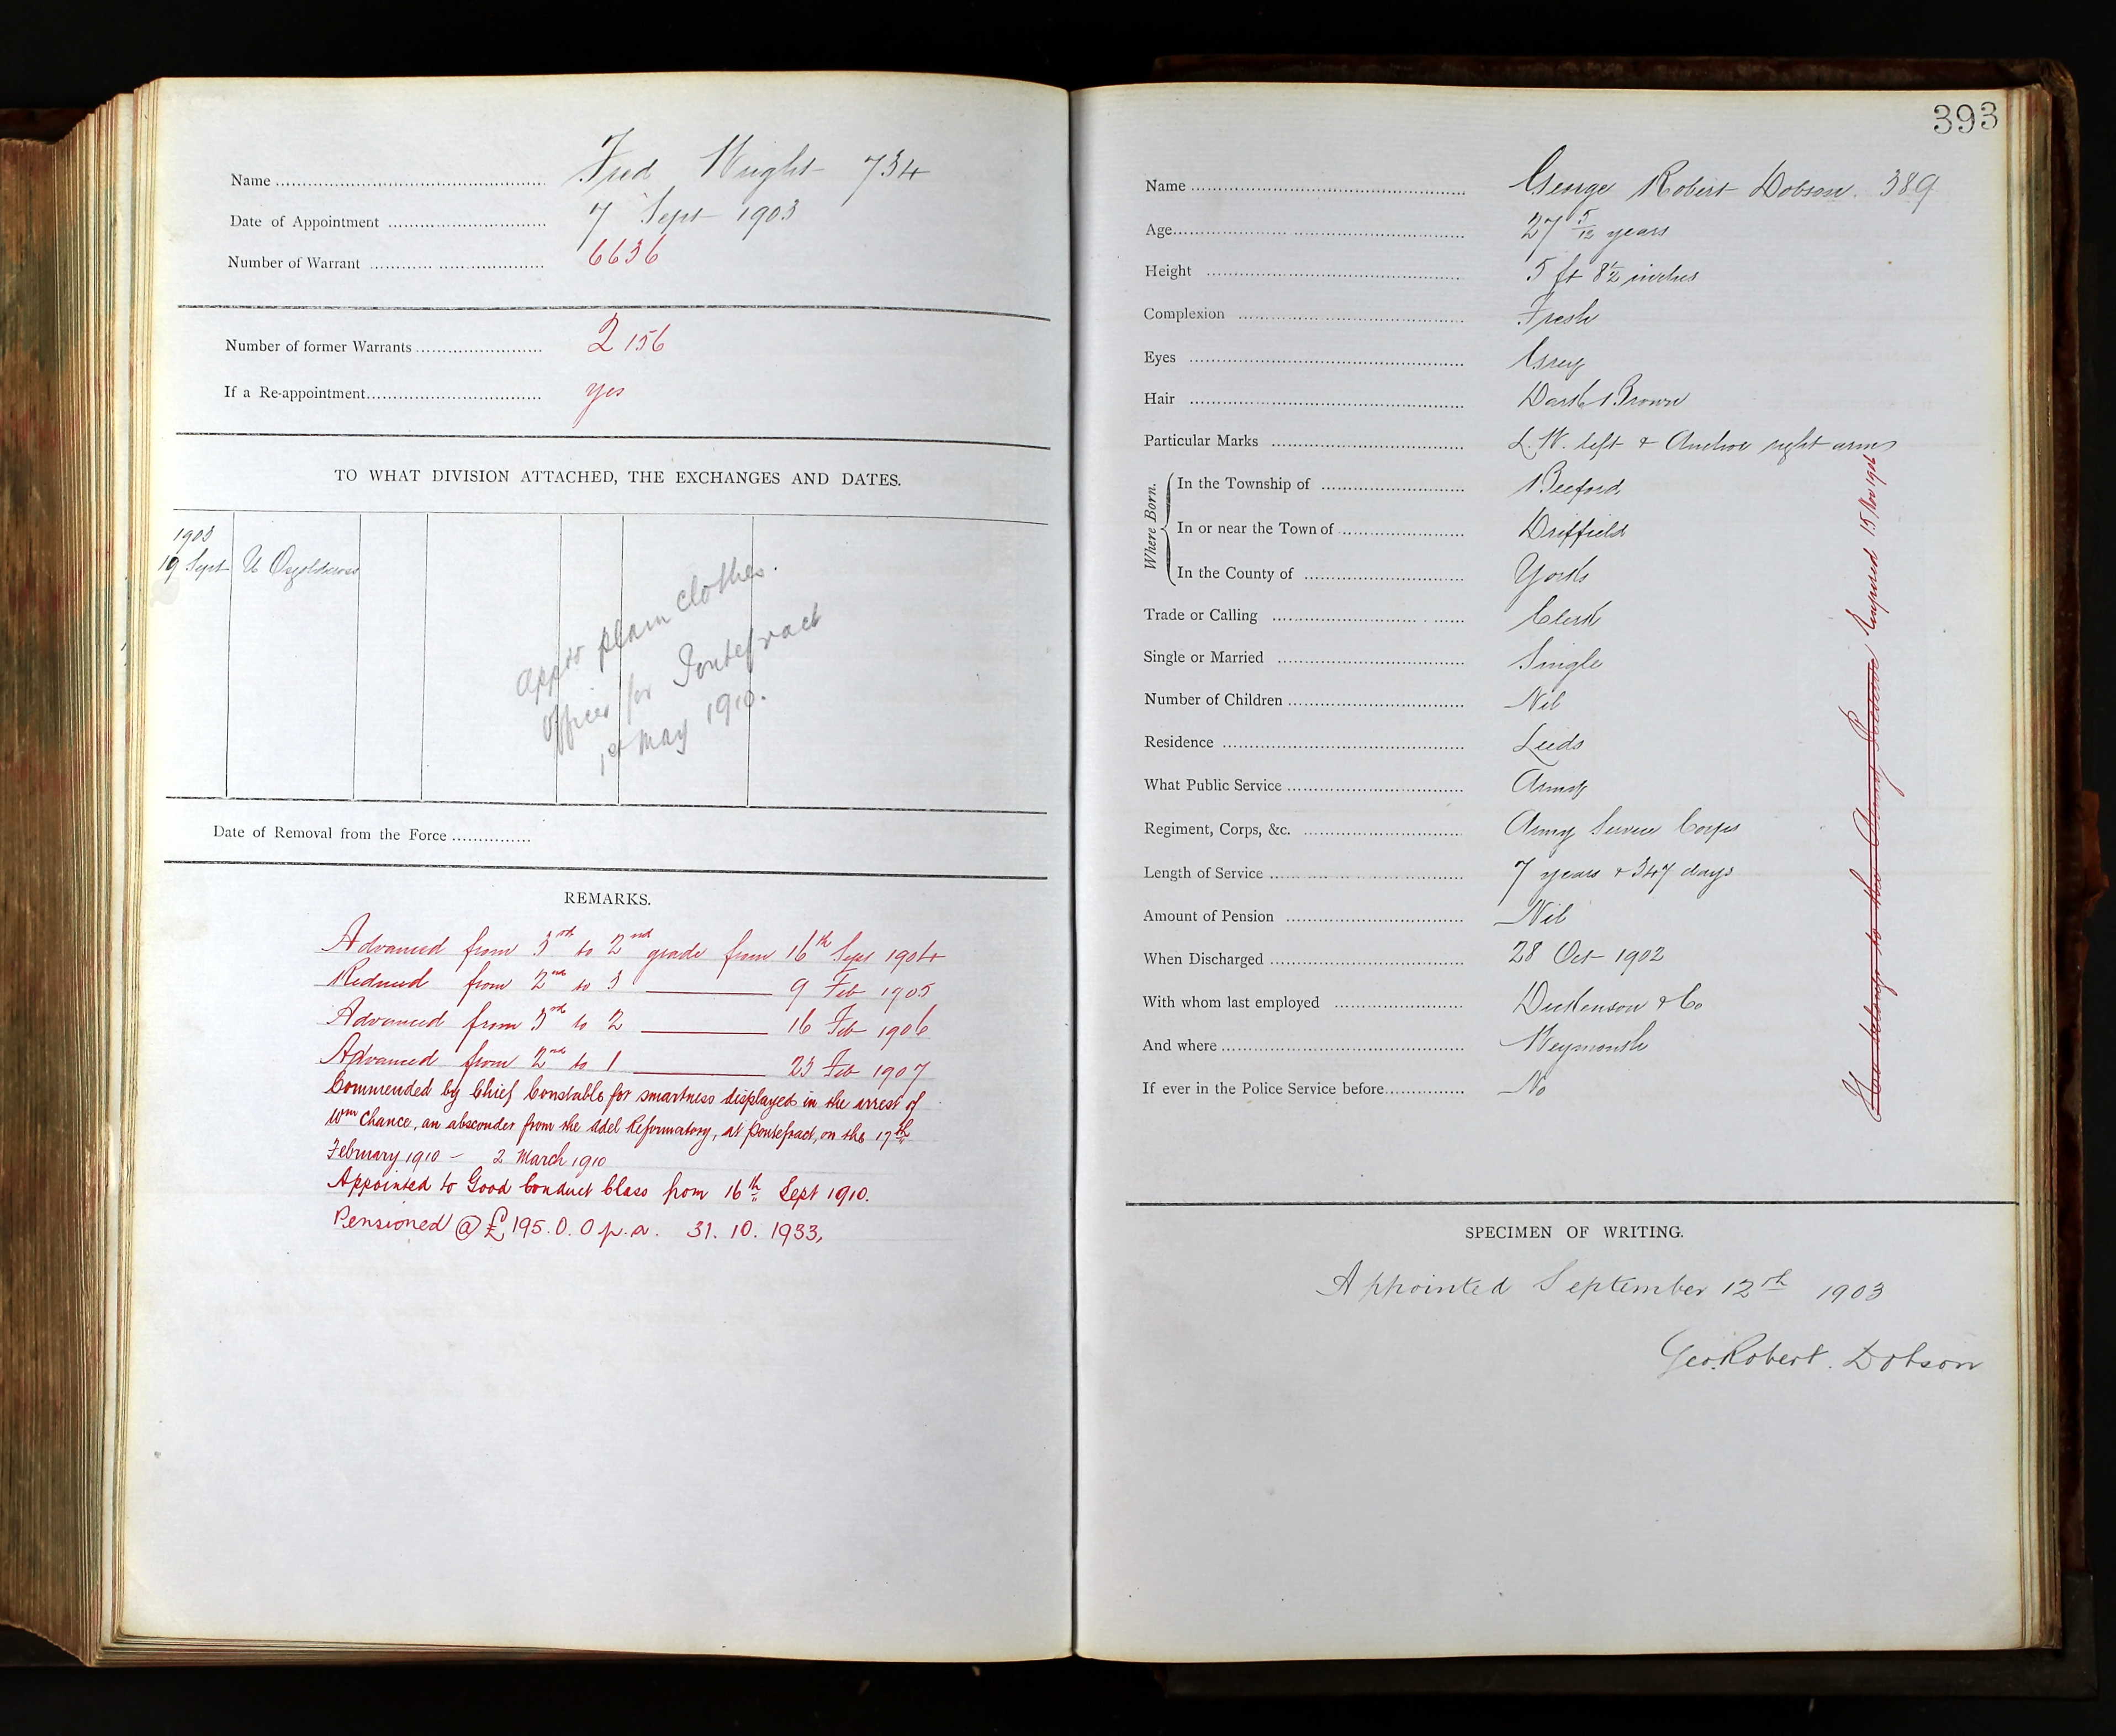 Name ........ Fred Wright 734
Date of Appointment ........ 7 Sept 1903
Number of Warrant ........ 6636
Number of former Warrants ........ 2156
If a Re-appointment ........ yes
TO WHAT DIVISION ATTACHED, THE EXCHANGES AND DATES.
1903
19 Sept U Osgoldcross
Apptd plain clothes.
Officer for Pontefract
1st May 1910.
Date of Removal from the Force ........
REMARKS.
Advanced from 3rd to 2nd grade from 16th Sept 1904
Reduced from 2nd to 3 ——— 9 Feb 1905
Advanced from 3rd to 2 ——— 16 Feb 1906
Advanced from 2nd to 1 ——— 23 Feb 1907
Commended by Chief Constable for smartness displayed in the arrest of
Wm Chance, an absconder from the Adel Reformatory, at Pontefract, on the 17th
February 1910 - 2 March 1910
Appointed to Good Conduct Class from 16th Sept 1910.
Pensioned @ £195.0.0 p.a. 31.10.1933,
393
Name ........ George Robert Dobson. 389
Age ........ 27 5/12 years
Height ........ 5 ft 8½ inches
Complexion ........ Fresh
Eyes ........ Grey
Hair ........ Dark Brown
Particular Marks ........ L.W. left & Anchor right arms
Where Born.
In the Township of ........ Beeford
In or near the Town of ........ Driffield
In the County of ........ Yorks
Trade or Calling ........ Clerk
Single or Married ........ Single
Number of Children ........ Nil
Residence ........ Leeds
What Public Service ........ Army
Regiment, Corps, &c. ........ Army Service Corps
Length of Service ........ 7 years & 347 days
Amount of Pension ........ Nil
When Discharged ........ 28 Oct 1902
With whom last employed ........ Dickenson & Co
And where ........ Weymouth
If ever in the Police Service before ........ No
belongs to the Army Reserve Expired 15 Nov 1906
SPECIMEN OF WRITING.
Appointed September 12th 1903
Geo. Robert. Dobson